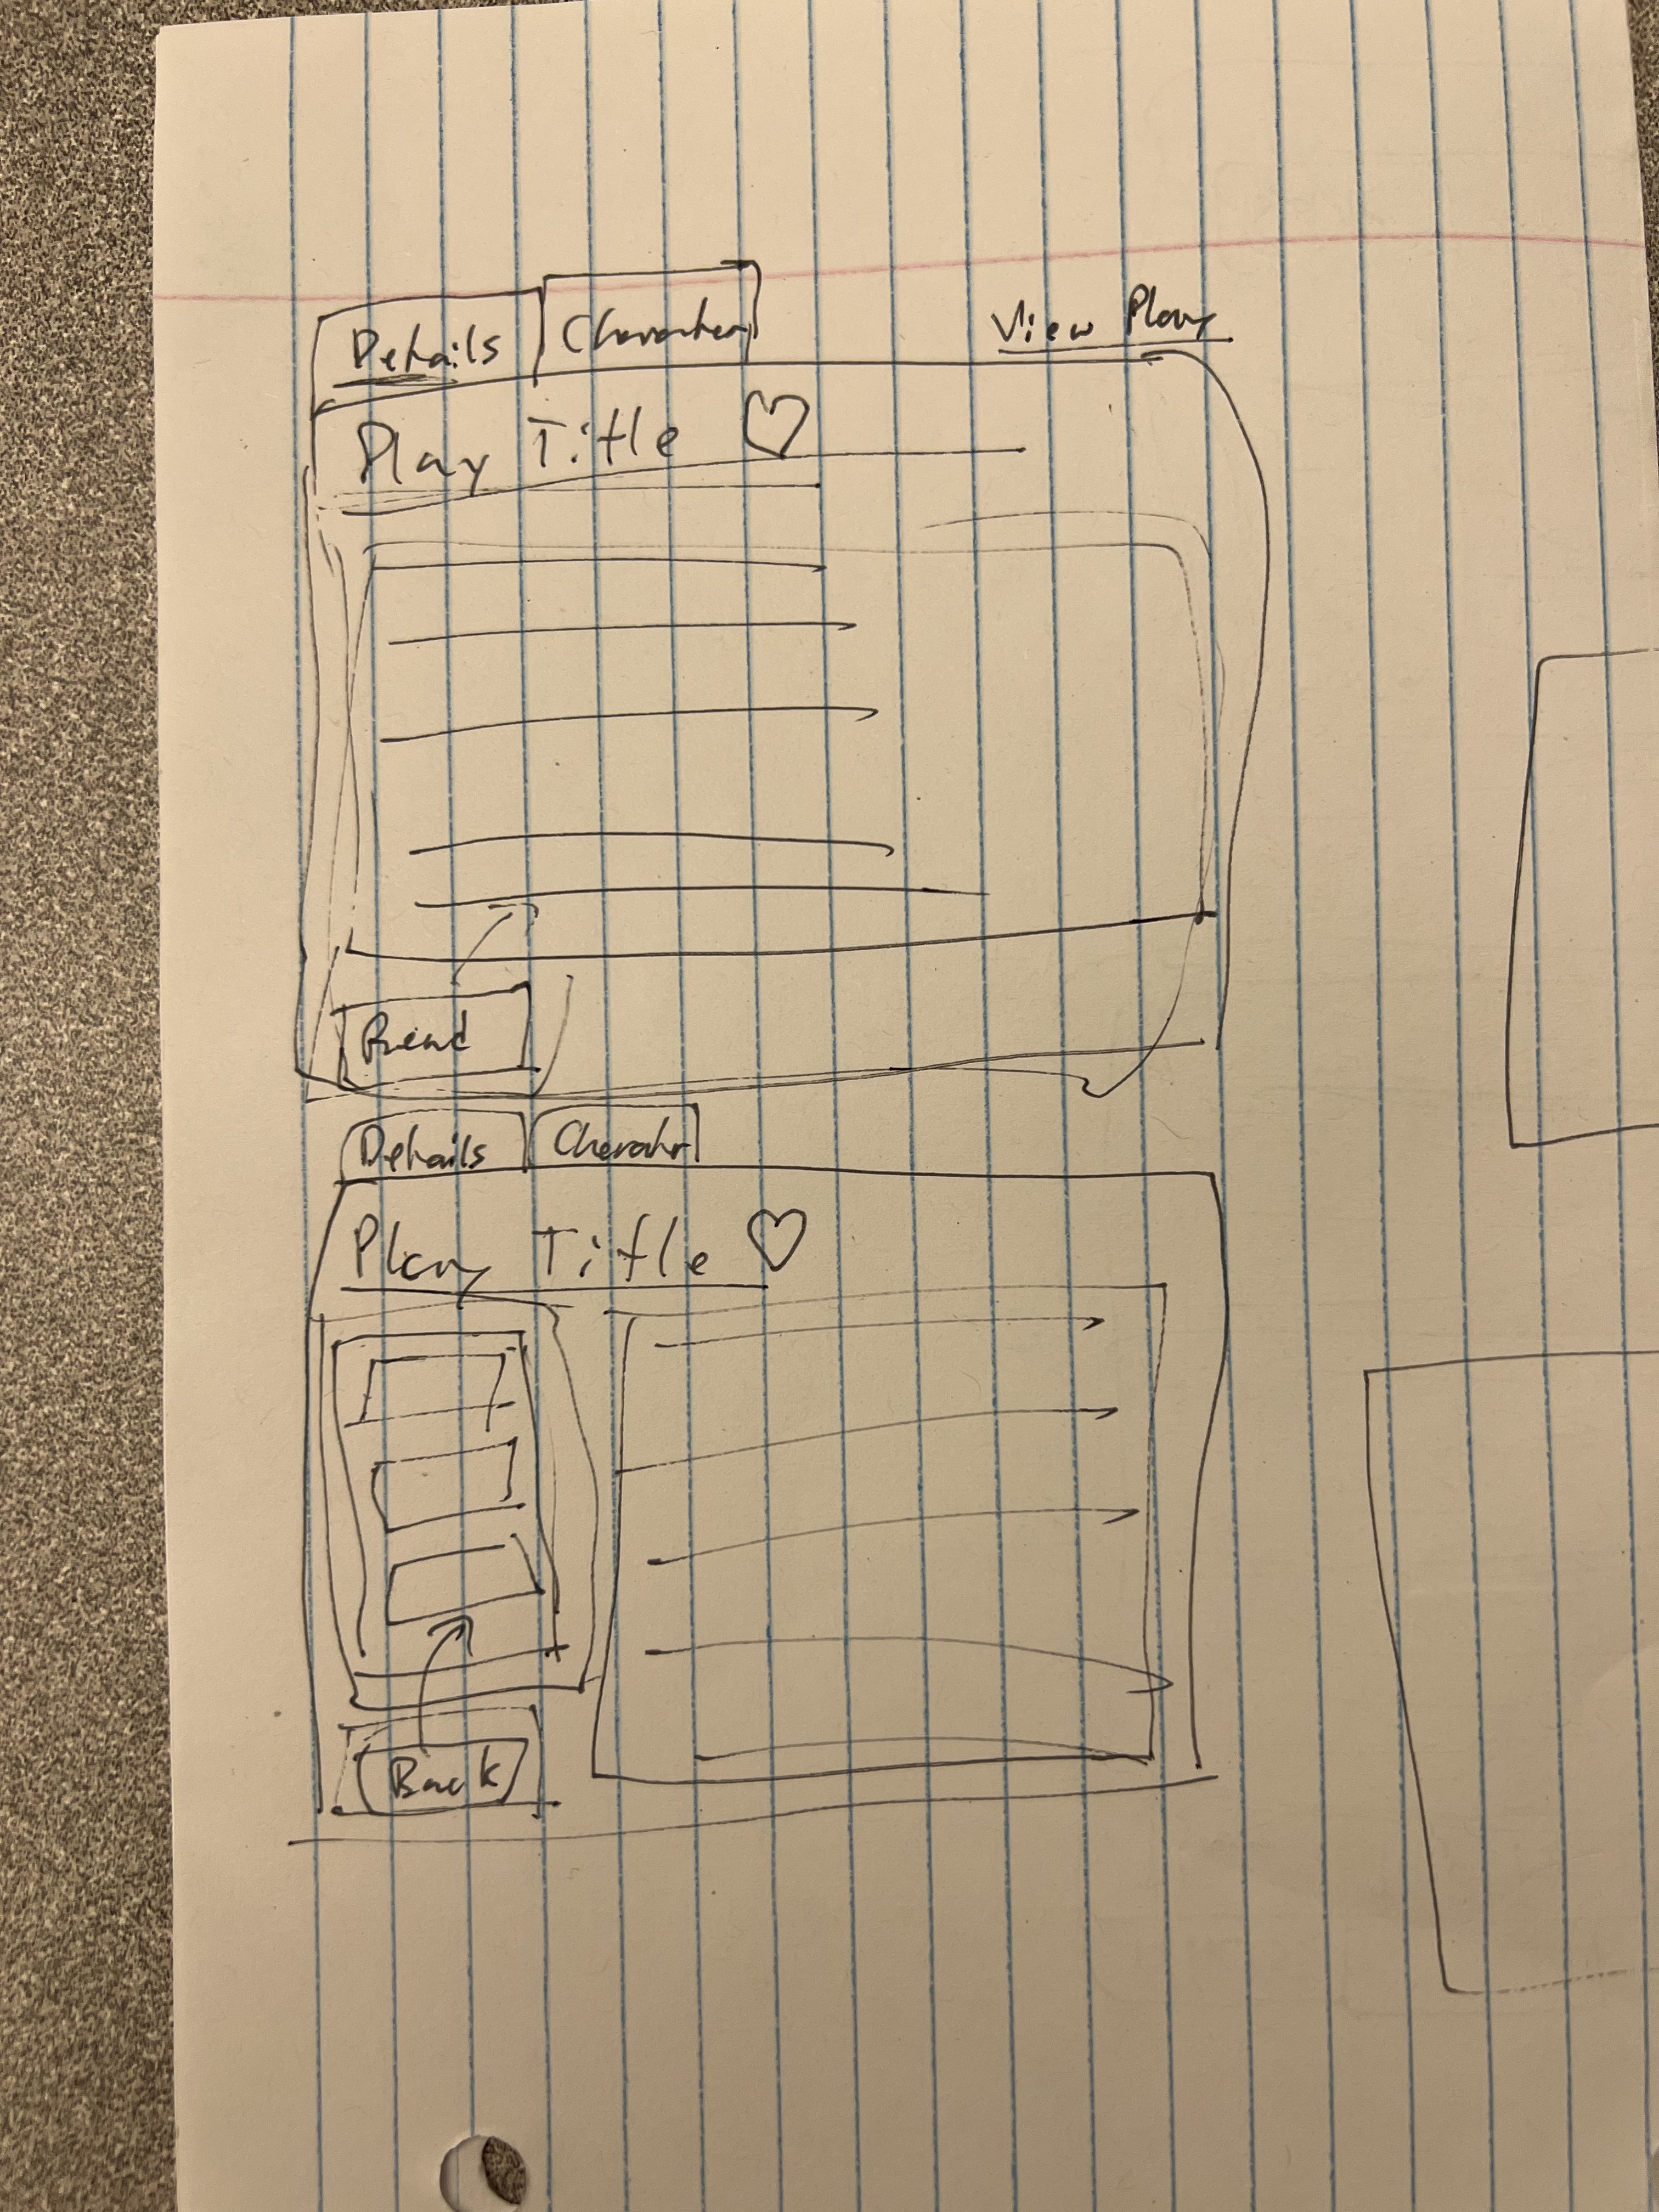 Details Characters View Play
Play Title
Read
Details
Play Title
Back